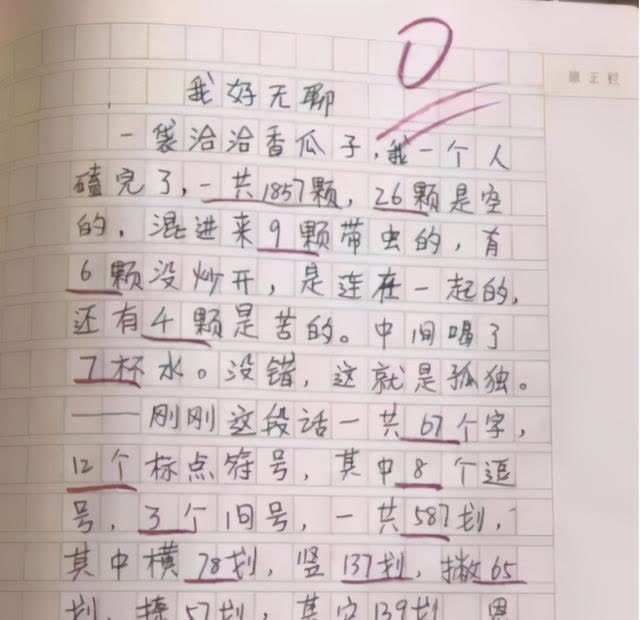 0
我好无聊
一袋洽洽香瓜子,我一个人
磕完了,一共1857颗,26颗是空
的,混进来9颗带虫的,有
6颗没炒开,是连在一起的,
还有4颗是苦的。中间喝了
7杯水。没错,这就是孤独。
——刚刚这段话一共67个字,
12个标点符号,其中8个逗
号,3个问号,一共587划,
其中横78划,竖137划,撇65
划,捺57划,其它139划